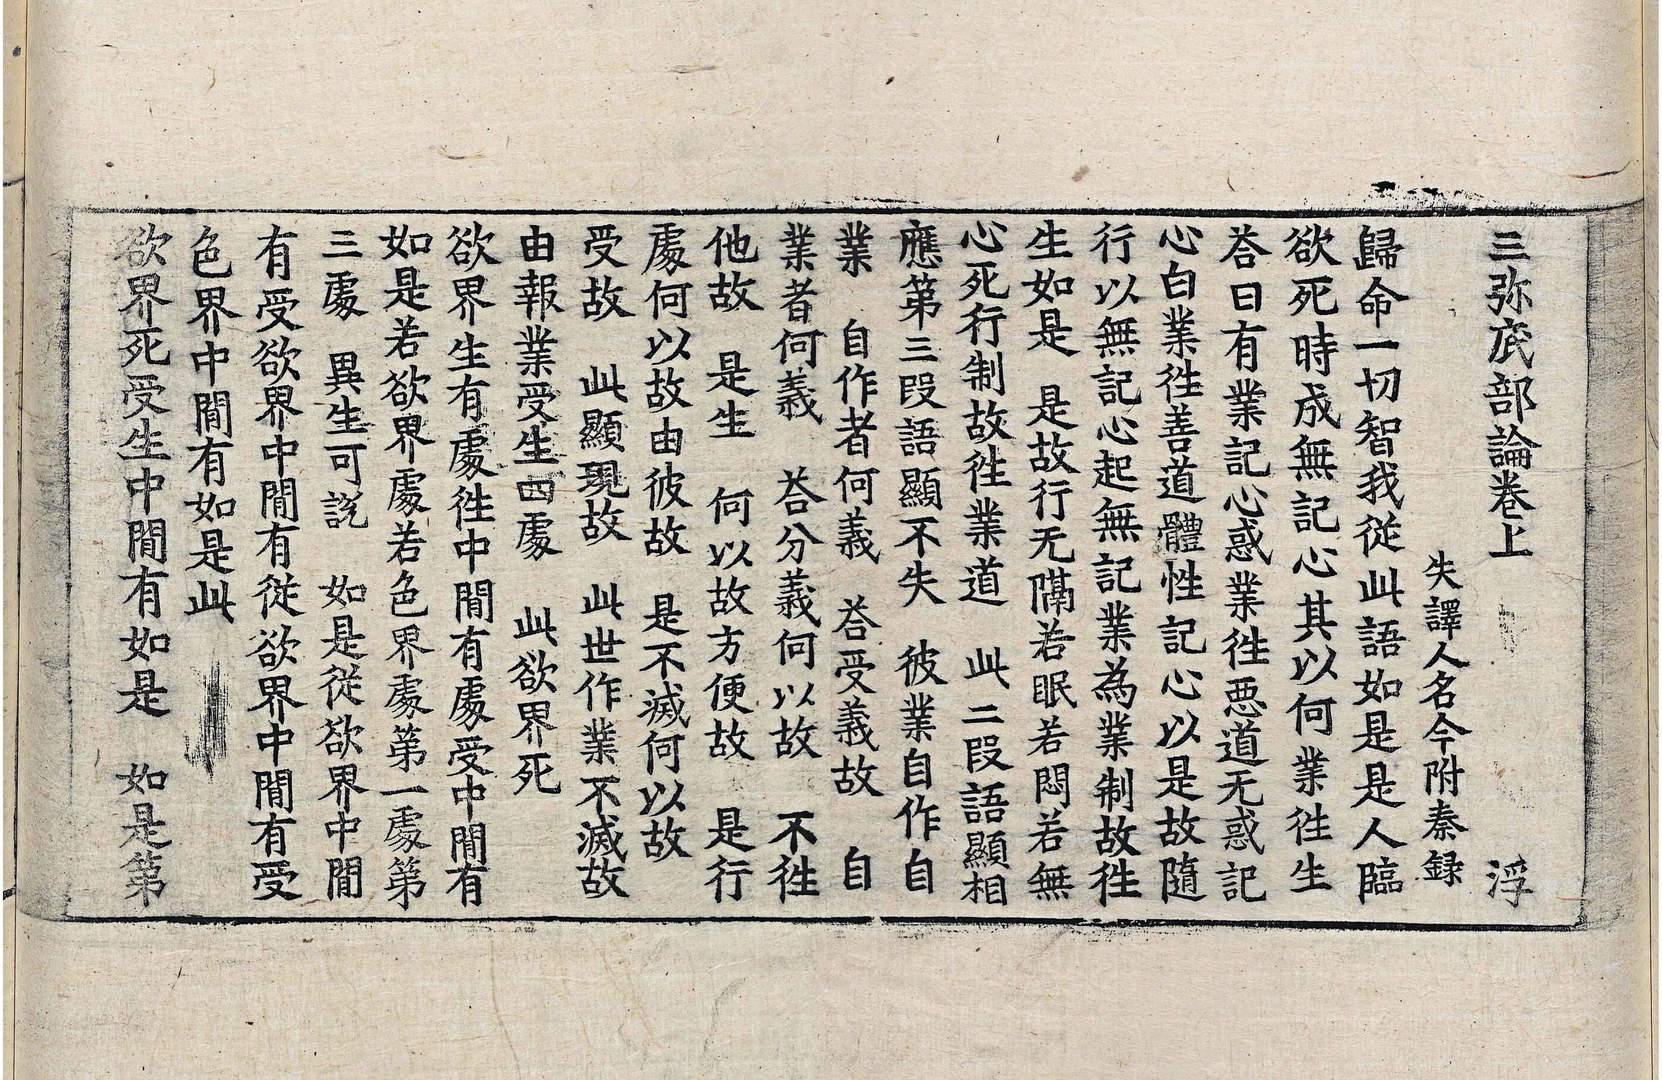 三弥底部論卷上　浮
失譯人名今附秦録
歸命一切智我從此語如是是人臨
欲死時成無記心其以何業徃生
荅曰有業記心惑業徃惡道无惑記
心白業徃善道體性記心以是故隨
行以無記心起無記業為業制故徃
生如是　是故行无隔若眠若悶若無
心死行制故徃業道　此二段語顯相
應第三段語顯不失　彼業自作自
業　自作者何義　荅受義故　自
業者何義　荅分義何以故　不徃
他故　是生　何以故方便故　是行
處何以故由彼故　是不滅何以故
受故　此顯現故　此世作業不滅故
由報業受生四處　此欲界死
欲界生有處徃中間有處受中間有
如是若欲界處若色界處第一處第
三處　異生可說　如是從欲界中間
有受欲界中間有從欲界中間有受
色界中間有如是此
欲界死受生中間有如是　如是第